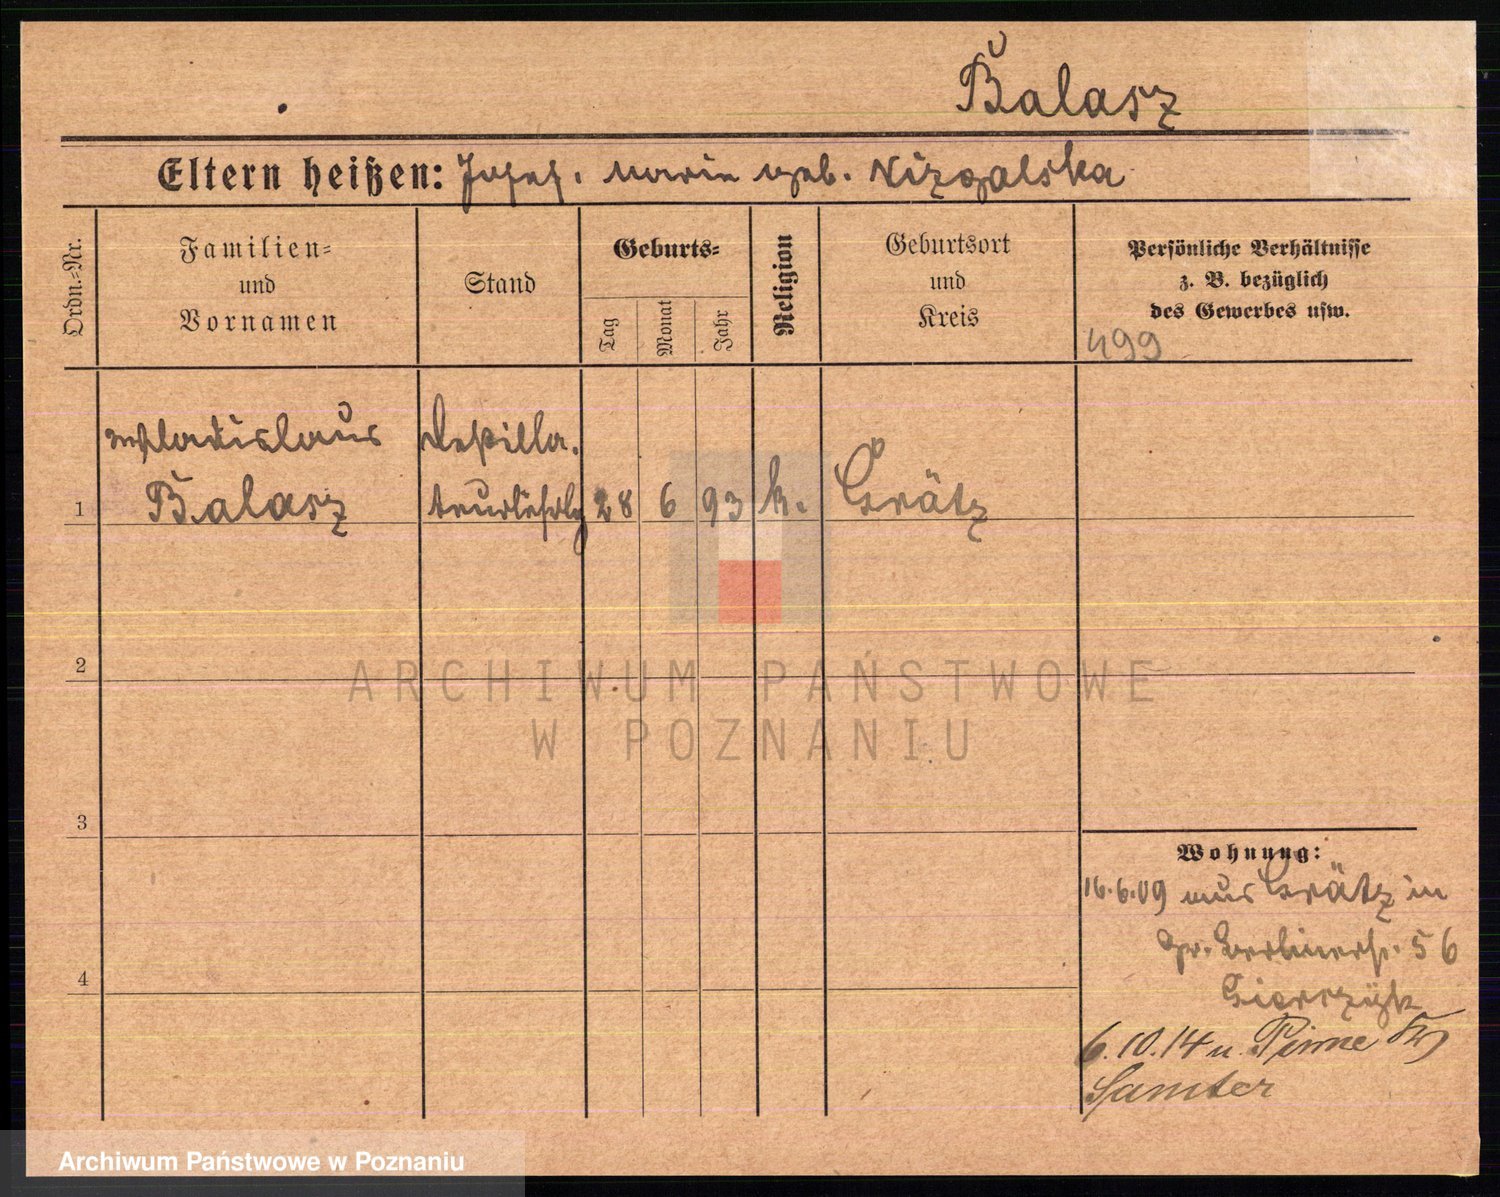 Balasz
Eltern heißen: Josef, Marie geb. Nizgalska
Ordn.-Nr.
Familien-
und
Vornamen
Stand
Geburts-
Tag
Monat
Jahr
Religion
Geburtsort
und
Kreis
Persönliche Verhältnisse
z. B. bezüglich
des Gewerbes usw.
499
Wladislaus
Balasz
Destilla-
teurlehrlg
1
28
6
93
k.
Grätz
2
3
4
Wohnung:
16.6.09 aus Grätz in
gr. Berlinerstr. 56
6.10.14 n. Pinne
Samter
ARCHIWUM PAŃSTWOWE
W POZNANIU
Archiwum Państwowe w Poznaniu